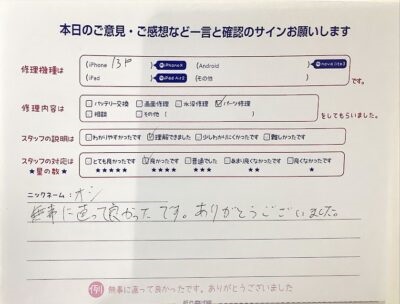 本日のご意見・ご感想など一言と確認のサインお願いします
修理機種は (iPhone 13P )iPhoneX (Android )nova lite2
(iPad )iPad Air2 (その他 ) です。
修理内容は □バッテリー交換 □画面修理 □水没修理 ☑パーツ修理
□相談 □その他 ( ) をしてもらいました。
スタッフの説明は □わかりやすかったです ☑理解できました □少しわかりにくかったです □難しかったです
スタッフの対応は □とても良かったです ☑良かったです □普通でした □あまり良くなかったです □良くなかったです
★星の数★ ★★★★★ ★★★★ ★★★ ★★ ★
ニックネーム:オシ
無事に直って良かったです。ありがとうございました。
例 無事に直って良かったです。ありがとうございました